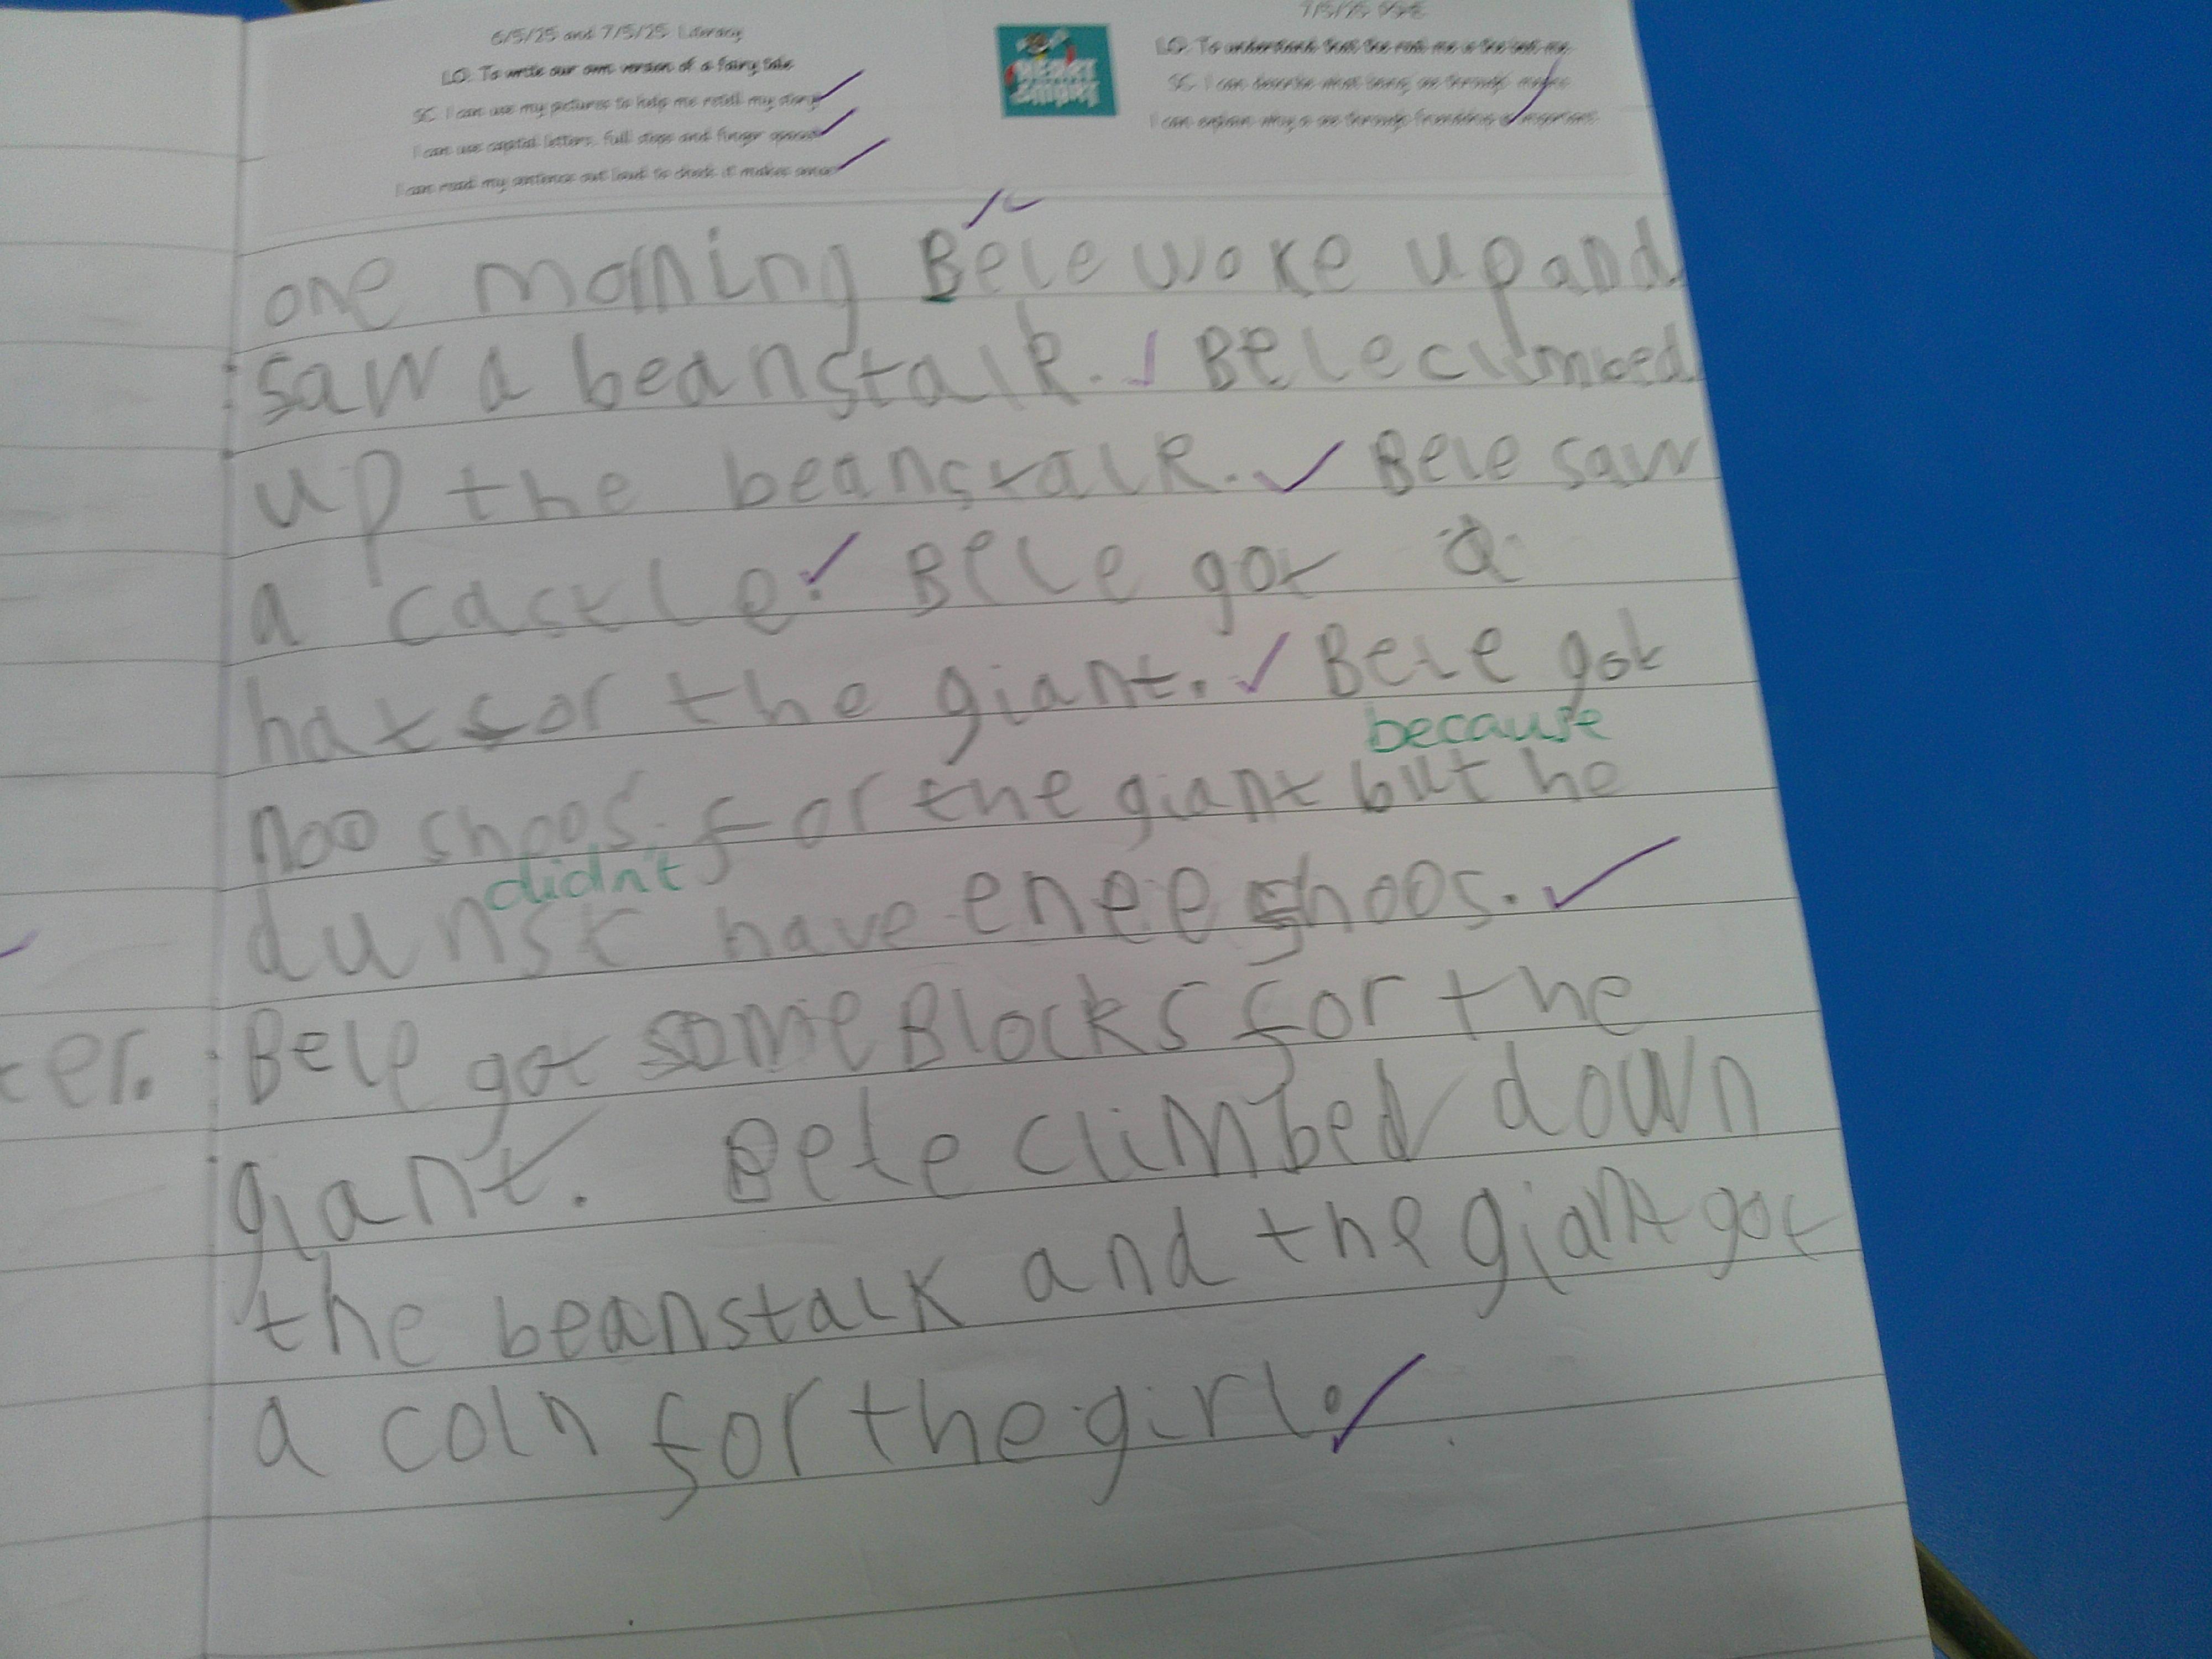 6/5/25 and 7/5/25 Literacy
LO: To write our own version of a fairy tale
SC: I can use my pictures to help me retell my story
I can use capital letters, full stops and finger spaces
I can read my sentence out loud to check it makes sense
7/5/25 PSHE
HEART
SMART
LO: To understand that the real me is the best me
one morning Bele woke up and
saw a beanstalk. Bele climbed
up the beanstalk. Bele saw
a castle. Bele got a
hat for the giant. Bele got
because
noo shoos for the giant but he
didn't
dunst have enee shoos.
ter.
Bele got some Blocks for the
giant. Bele climbed down
the beanstalk and the giant got
a coin for the girl.